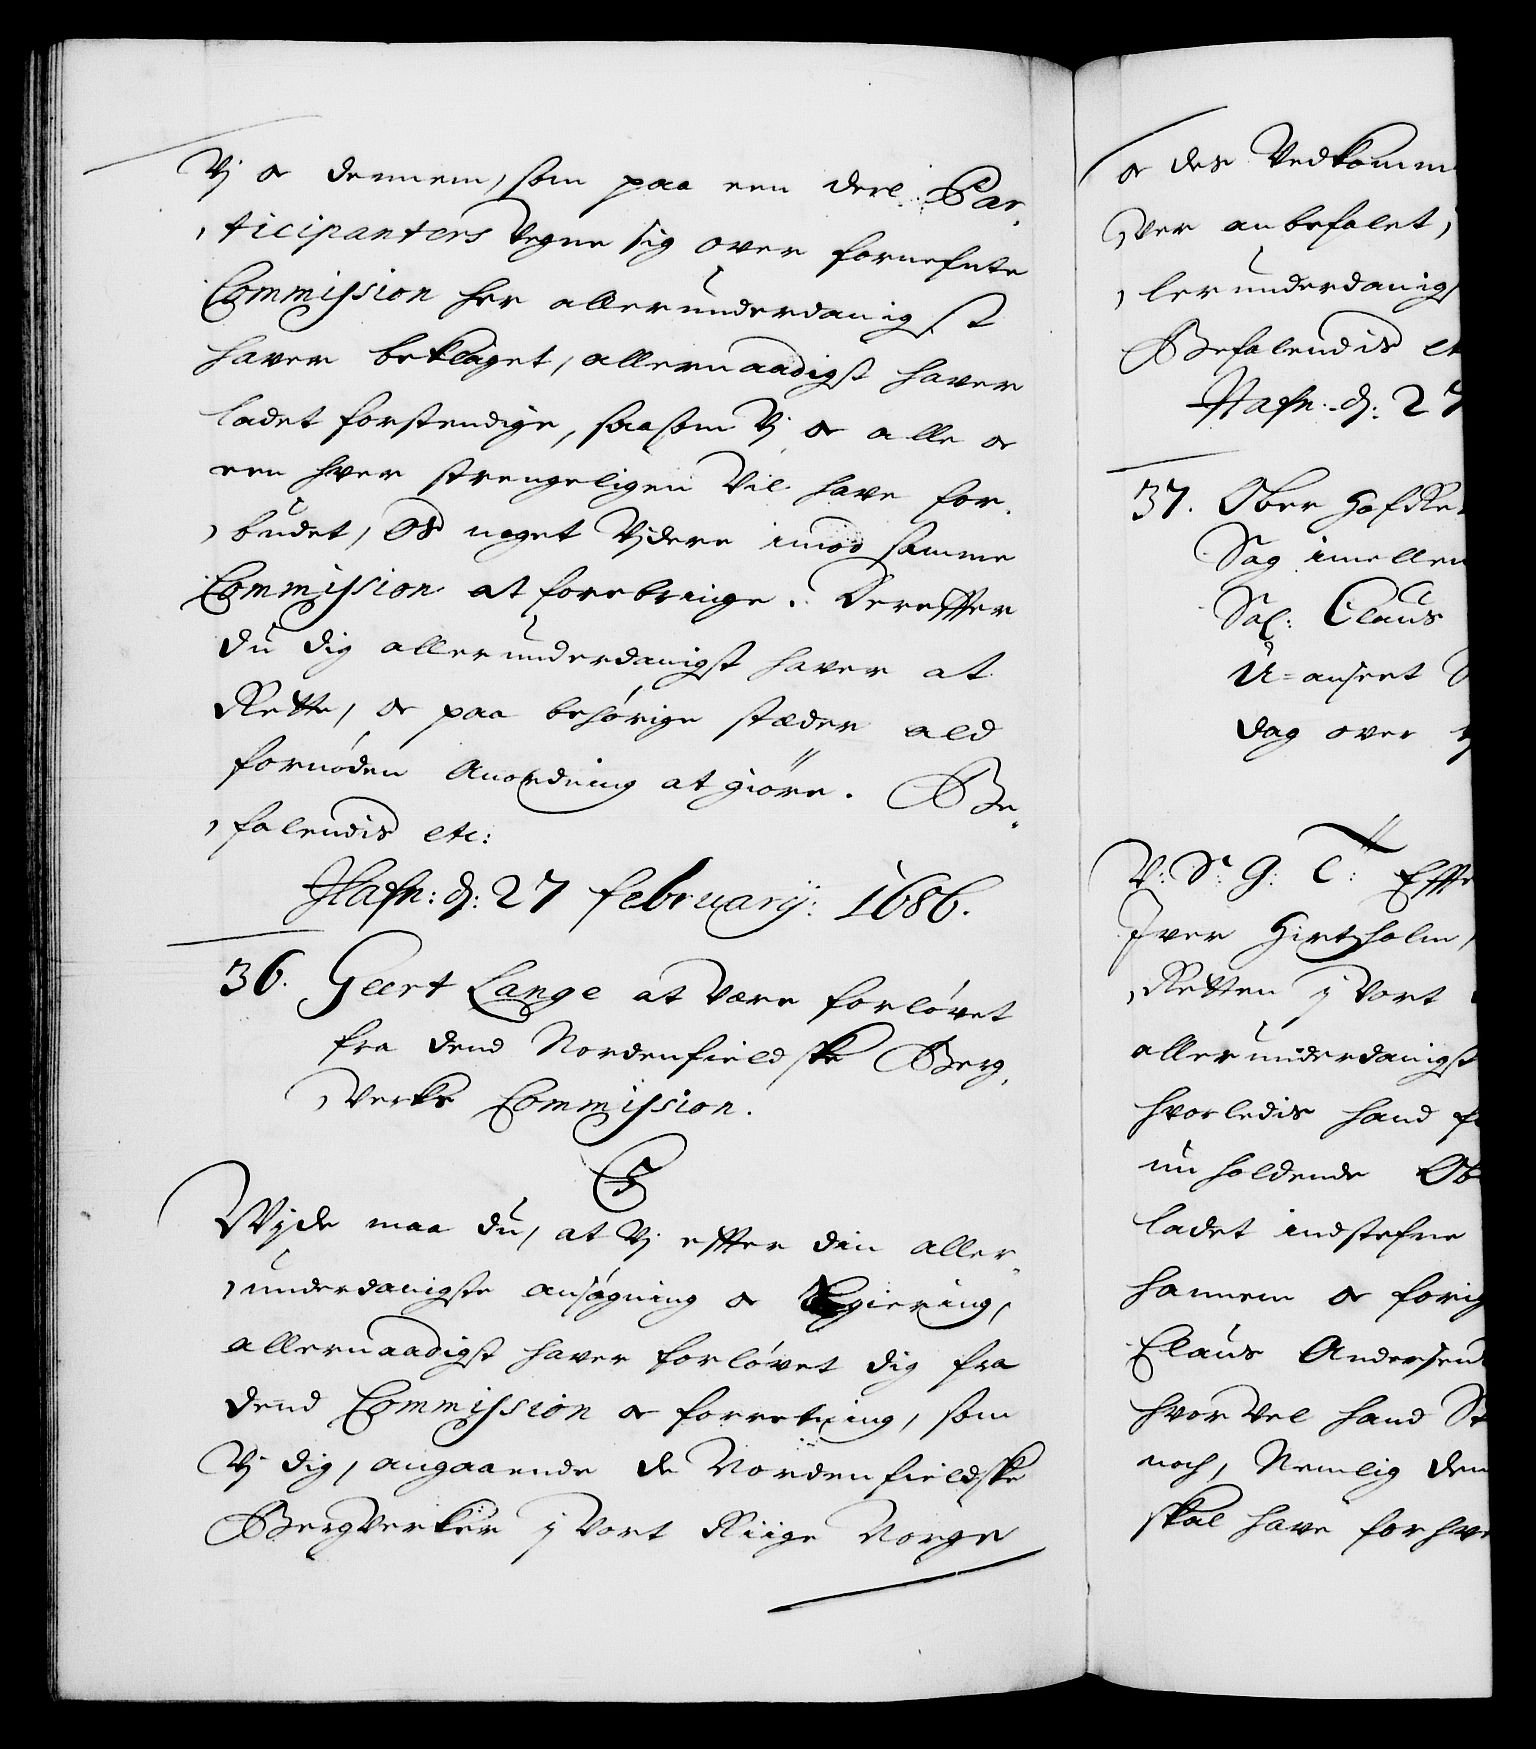 Vj oc dennem, som paa een deel Par-
ticipanters Vegne sig over fornefnte
Commission her allerunderdanigst
haver beklaget, allernaadigst haver
ladet forstendige, saasom Vj oc alle oc
een hver strengeligen Vil have for-
budet, Os noget Vjdere imod samme
Commission at forebringe. Dereffter
du dig allerunderdanigst haver at
Rette, oc paa behørige stæder ald
fornøden Anordning at giöre. Be-
falendis etc:
Hafn: d: 27 februarij: 1686.
36. Geert Lange at være forløvet
fra dend Nordenfieldske Berg-
Verks Commission.
C5
Wjde maa du, at Vj effter din aller-
underdanigste ansøgning oc Begiering,
allernaadigst haver forløvet dig fra
dend Commission oc forretning, som
Vj dig, angaaende de Nordenfieldske
BergVerker j Vort Riige Norge
oc des Vedkomm
Ver anbefalet,
lerunderdanigs
Befalendis et
Hafn: d: 27
37. Ober HofRe
Sag imellem
Sal: Claus
U=anseet
dag over
V: S: G: T: Effte
Iver Hirtzholm,
Retten j Vort
allerunderdanigst
hvorledis hand f
nu holdende Ob
ladet indstefne
hannem oc forig
Claus Andersen
hvor Vel hand St
noch, Nemlig den
skal have forhve